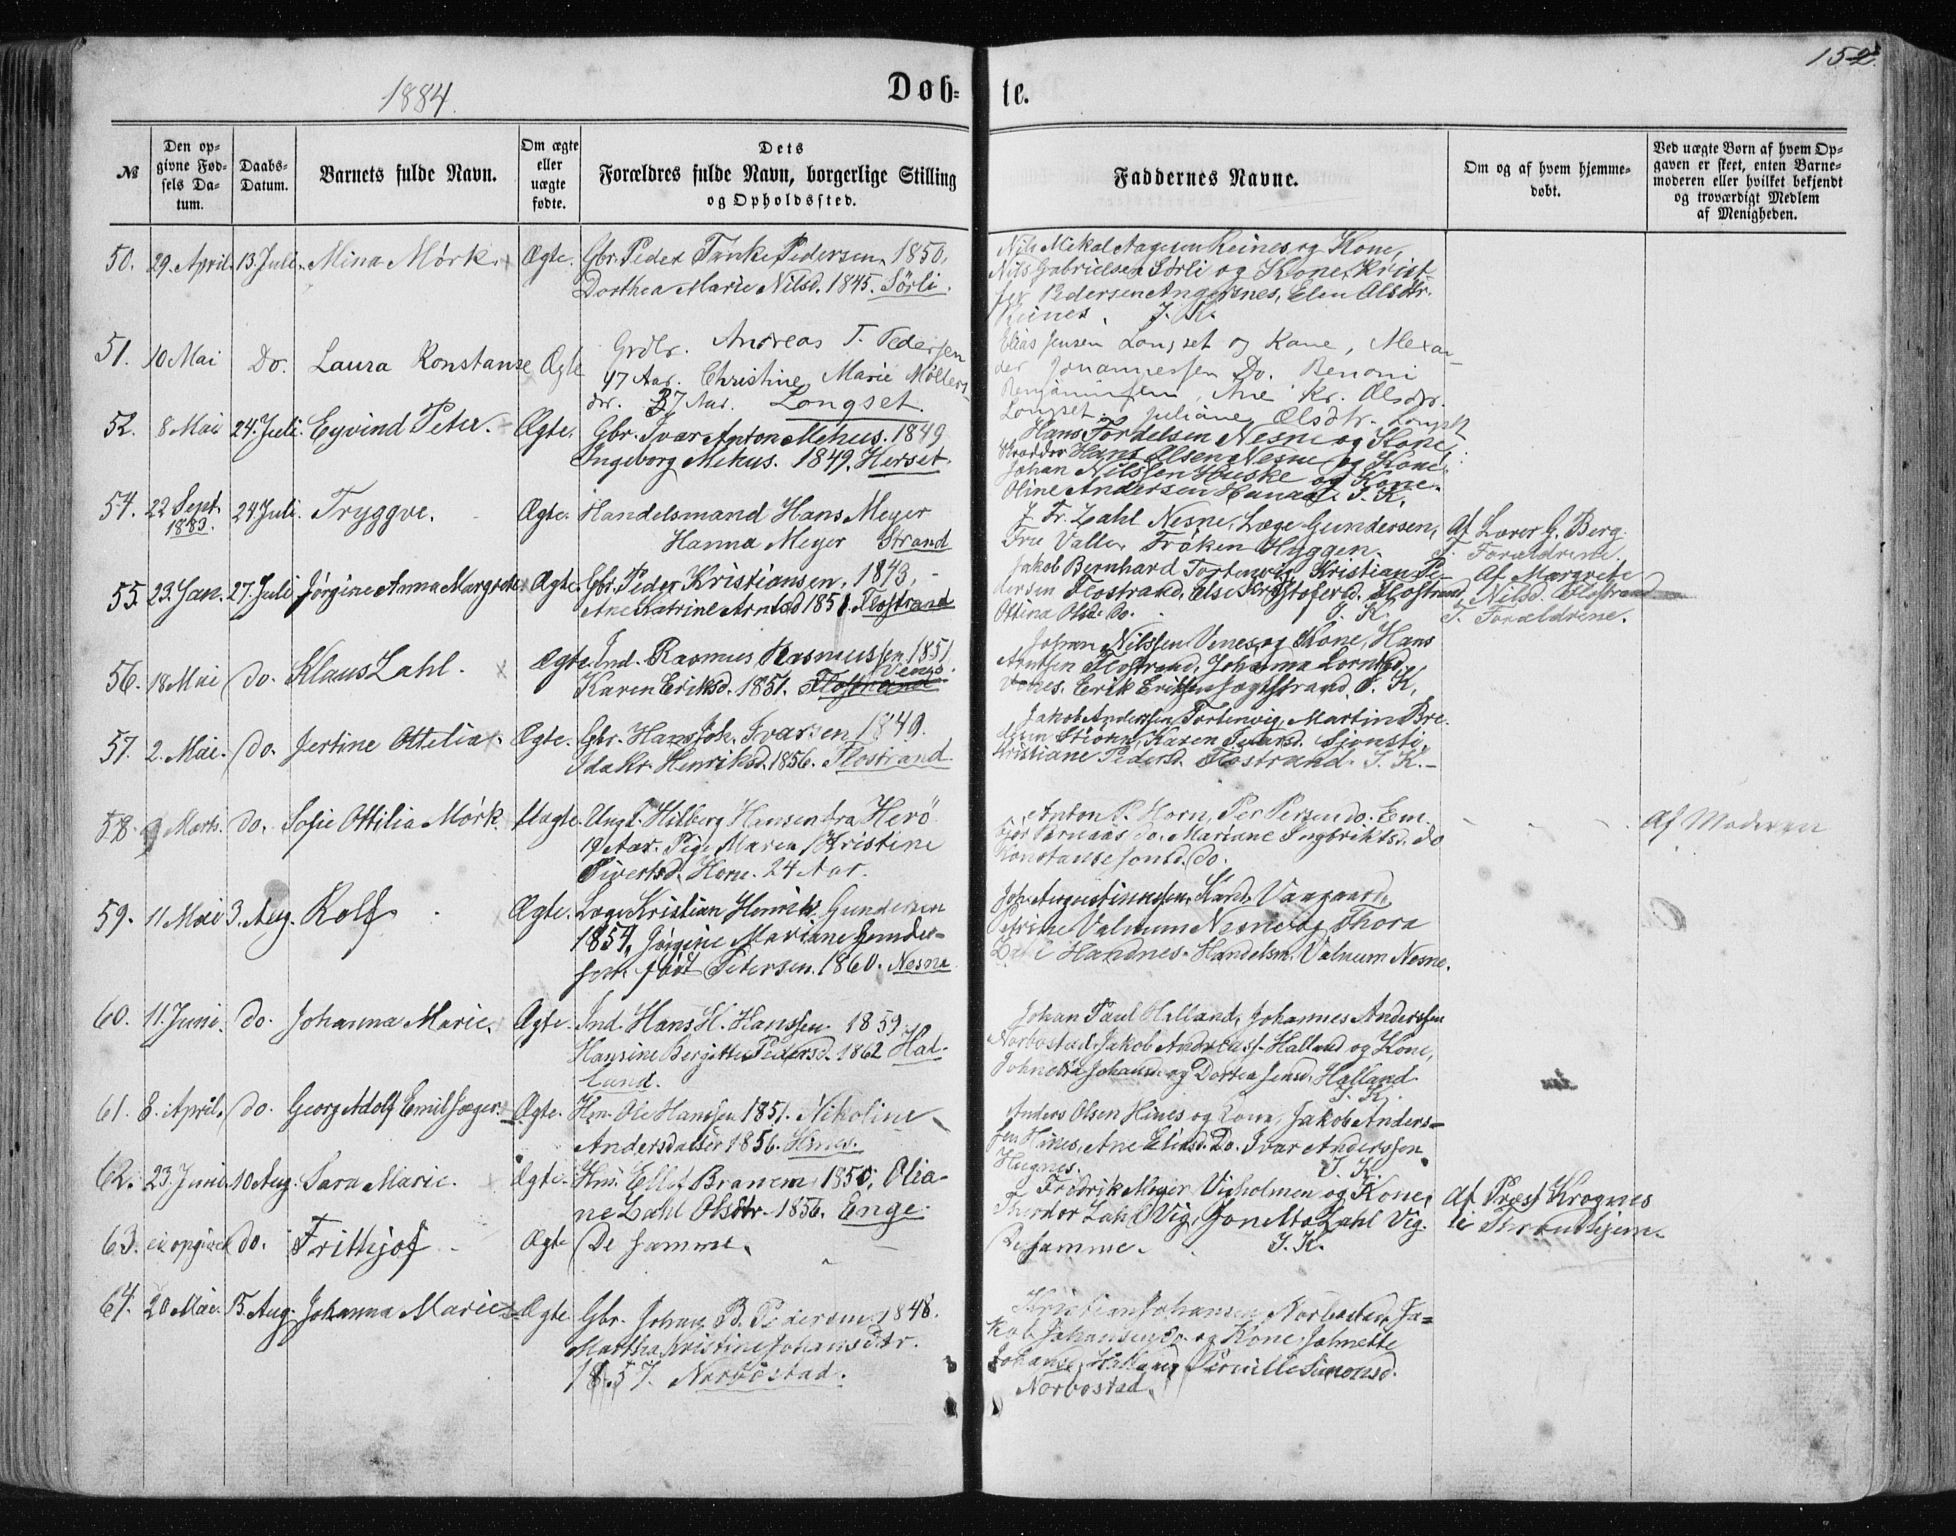 152.
1884.
Döb-
te.
№
Den op-
givne Fød-
sels Da-
tum.
Daabs-
Datum.
Barnets fulde Navn.
Om ægte
eller
uægte
fødte.
Dets
Forældres fulde Navn, borgerlige Stilling
og Opholdssted.
Faddernes Navne.
Om og af hvem hjemme-
døbt.
Ved uægte Børn af hvem Op-
gaven er skeet, enten Barne-
moderen eller hvilket bekjendt
og troværdigt Medlem
af Menigheden.
50. 29. April. 13. Juli. Mina Mörk. Ægte. Gbr. Peder Tanke Pedersen 1850,
Dorthea Marie Nilsd. 1845. Sörli.
Nils Mikal Aagesen Reines og Kone,
Nils Gabrielsen Sörli og Kone, Krist
Pedersen Angersnes, Elen Olsdtr.
Reines. I. K.
51. 10 Mai Do. Laura Konstanse Ægte Grdbr. Andreas T. Pedersen
47 Aar. Christine Marie Möllers-
dtr. 37 Aar. Longset.
Elias Jensen Longset og Kone, Alexan-
der Johannessen Do. Benoni
Benjaminsen, Ane Kr. Olsdtr.
Longset. Juliane Olsdtr. Longset
52. 8 Mai 24. Juli. Eyvind Peter. Ægte. Gbr. Ivar Anton Mehus. 1849
Ingeborg Mehus. 1849. Herset.
Hans Tordelsen Nesne og Kone
Hans Olsen Nesne og Kone,
Johan Nilssen Huske og Kone.
Oline Andersen I. K.
54. 22 Sept. 1883. 24 Juli. Tryggve. Ægte. Handelsmand Hans Meyer
Hanna Meyer Strand
J. Fr. Zahl Nesne, Læge Gundersen,
Frue Valler, Fröken Hyggen.
Af Lærer G. Berg.
T. Forældrene.
55. 23. Jan. 27. Juli Jörgine Anna Margrete Ægte. Gbr. Peder Kristiansen, 1843,
Ane Katrine Arntsd 1851. Flostrand
Jakob Bernhard Tortenvig, Kristian Pe-
dersen Flostrand, Else Kristofersd. Flostrand,
Ottina Olsd. do. I. K.
Af Margrete
Nilsd. Flostrand
T. Forældrene.
56. 18 Mai do. Klaus Zahl. Ægte. Ind. Rasmus Rasmussen 1851
Karen Eriksd. 1851. Flostrand Venes.
Johan Nilssen Venes og Kone, Hans
Arntsen Flostrand, Johanna
Venes. Erik Eriksen I. K.
57. 2. Mai. do. Jertine Ottilia. Ægte. Gbr. Hans Joh. Ivarsen 1849.
Ida Kr. Henriksd. 1856. Flostrand.
Jakob Anderssen Tortenvig, Martin Bre-
Karen Ivarsd. Sjonsti,
Kristiane Pedersd. Flostrand. I. K.
58. 9 Marts. do. Sofie Ottilia Mörk. Uægte. Ungk. Hilberg Hensen fra Herö
19 Aar. Pige Maren Kristine
Sivertsd. Horn. 24 Aar.
Anton P. Horn, Per Persen do. Em.
do. Mariane Ingbriktsd. do
Konstanse do.
Af Moderen
59. 11 Mai 3. Aug. Rolf Ægte. Læge Kristian Henrik Gundersen
1854, Jörgine Mariane Gunder-
sen. födt Petersen. 1860. Nesne
Joh. Augustinussen, Kand. Vaagaard,
Petrine Valnum Nesne og Thora
Handnes. Handelsm. Valnum Nesne.
60. 11. Juni. do. Johanna Marie. Ægte. Ind. Hans H. Hanssen 1859.
Hansine Bergitte Pedersd. 1862 Hal-
land.
Johan Paul Halland, Johannes Anderssen
Norbostad, Jakob Andreass. Halland og Kone,
Johnetta Johansd. og Dortea Jensd. Halland.
I. K.
61. 8. April. do. Georg Adolf Emil Jæger. Ægte. Hm. Ole Hanssen 1851. Nikoline
Andersdatter 1856. Hines.
Anders Olsen Hines og Kone, Jakob Anders-
sen Hines, Ane Eliasd. Do. Ivar Anderssen
Hugnes. I. K.
62. 23 Juni. 10 Aug. Sara Marie. Ægte. Hm. Ellef Branem 1850; Olia-
ne Zahl Olsdtr. 1856. Enge.
Fredrik Meyer Vigholmen og Kone,
Theodor Zahl Vig, Jonetta Zahl Vig.
I. K.
Af Præst Krognes
i Throndhjem.
63. ei opgivet do. Frithjof Ægte De samme.
De samme.
64. 20 Mai. 15. Aug. Johanna Marie Ægte. Gbr. Johan B. Pedersen 1848.
Martha Kristine Johansdtr.
1857. Norbostad.
Kristian Johansen Norbostad, Ja-
kob Johansen do og Kone, Johnette
Johansd. Halland, Pernille Simonsd.
Norbostad.